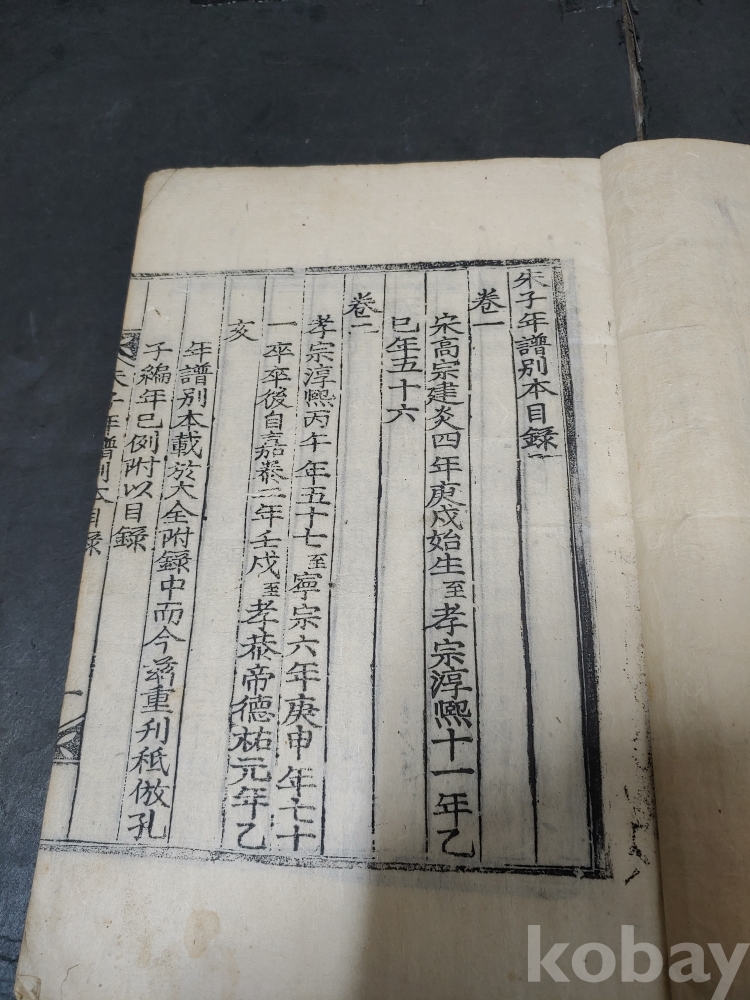 朱子年譜別本目録
卷一
宋高宗建炎四年庚戍始生至孝宗淳熙十一年乙
巳年五十六
卷二
孝宗淳熙丙午年五十七至寧宗六年庚申年七十
一卒卒後自嘉泰二年壬戍至孝恭帝德祐元年乙
亥
年譜別本載於大全附録中而今玆重刋秪倣孔
子編年已例附以目録
朱子年譜別本目録
一
kobay